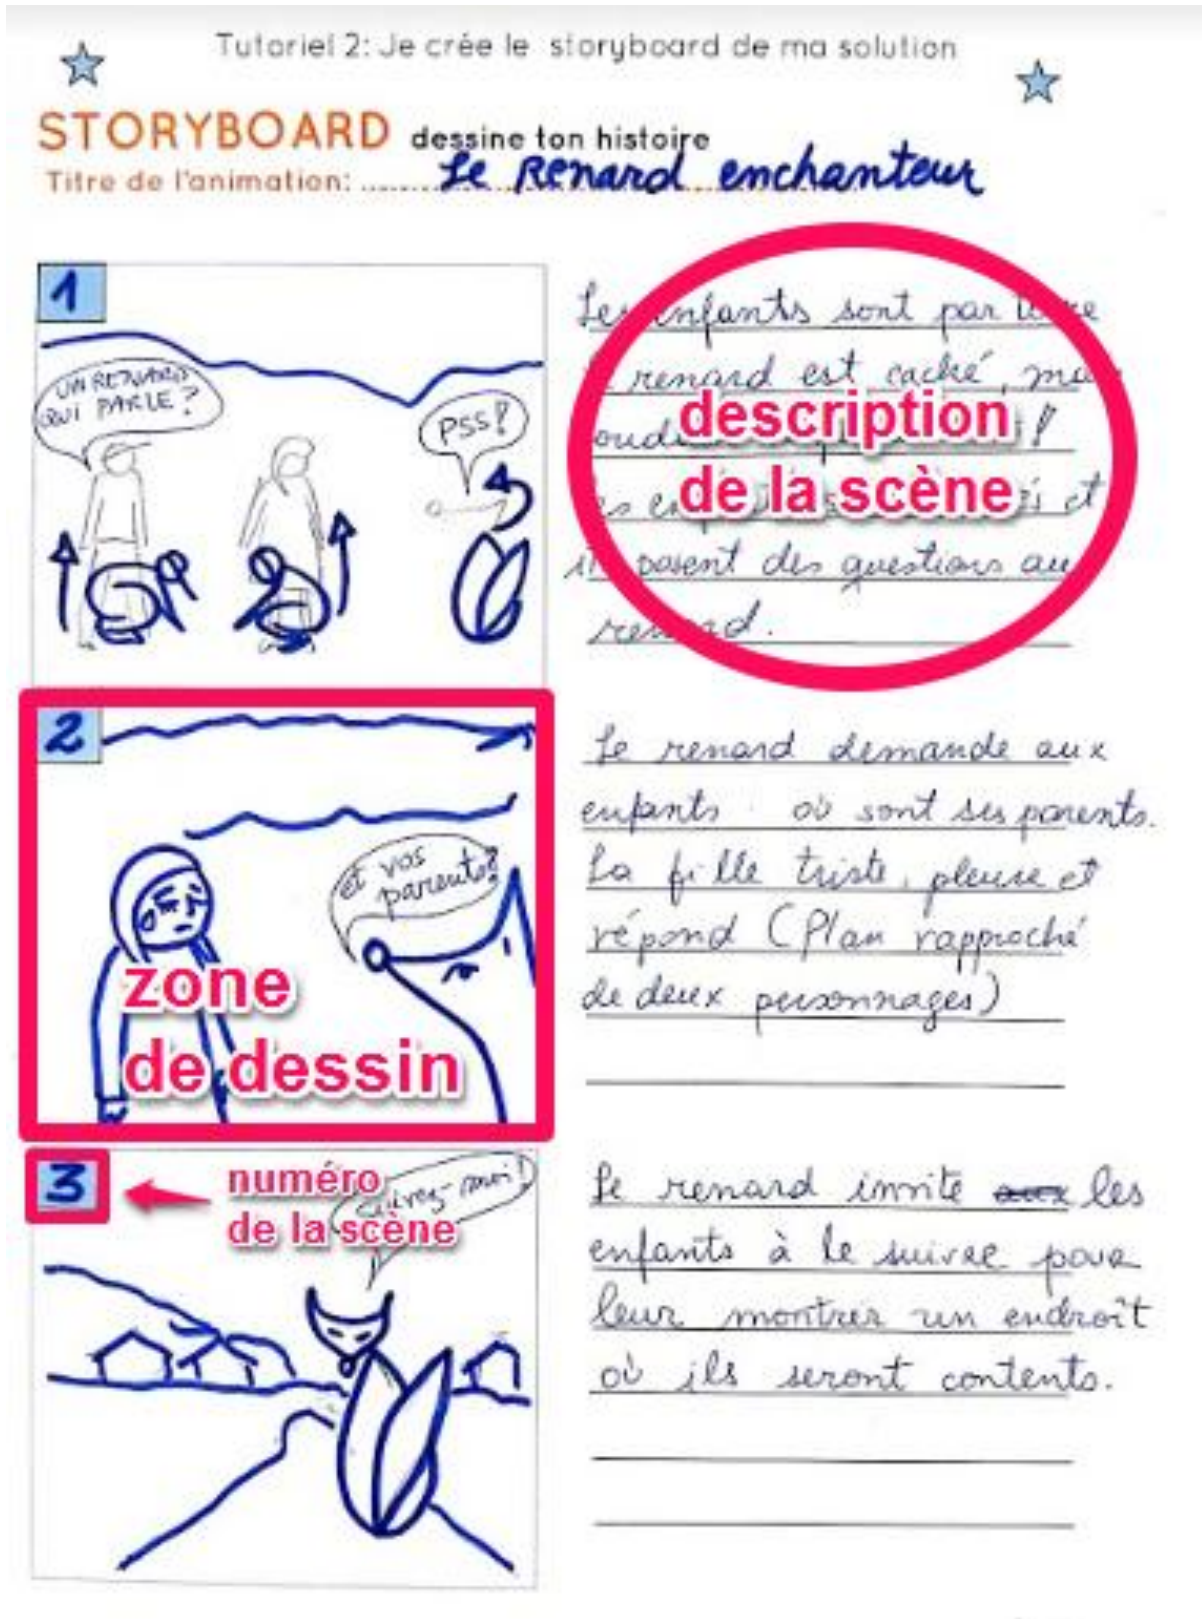 Tutoriel 2: Je crée le storyboard de ma solution
STORYBOARD dessine ton histoire
Titre de l'animation: Le Renard enchanteur
1
UN RENARD
QUI PARLE?
PSS!
Les enfants sont par terre
renard est caché,
description
de la scène
et
posent des questions au
renard.
2
et vos
parents?
zone
de dessin
Le renard demande aux
enfants où sont ses parents.
La fille triste, pleure et
répond (Plan rapproché
de deux personnages)
3
numéro
de la scène
suivez-moi!
Le renard invite les
enfants à le suivre pour
leur montrer un endroit
où ils seront contents.